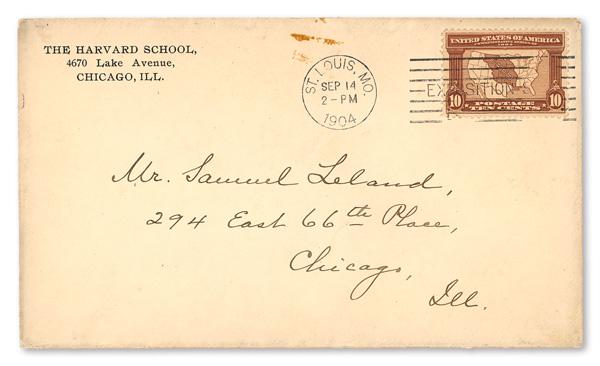 THE HARVARD SCHOOL,
4670 Lake Avenue,
CHICAGO, ILL.
ST. LOUIS, MO.
SEP 14
2-PM
1904
UNITED STATES OF AMERICA
EXPOSITION S
10 POSTAGE 10
TEN CENTS
Mr. Samuel Leland,
294 East 66th Place,
Chicago,
Ill.